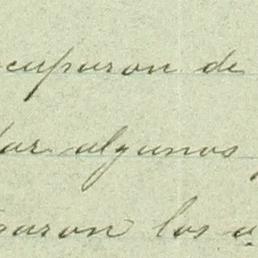 cuparon de
lar algunos
garon los